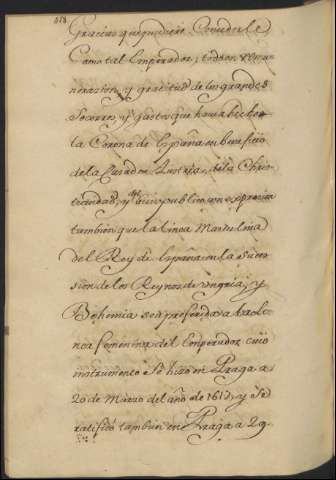 Gracias que pudiere Concederle
Como tal Emperador; todo en remu-
neracion, y gratitud de los grandes
Socorros, y gastos que havia hecho
la Corona de España en beneficio
de la Casa de Austria, y de la Chris-
tiandad; y del bien publico con expresion
tambien que la linea Masculina
del Rey de España en la Suce-
sion de los Reynos de Ungria, y
Bohemia sea preferida a la li-
nea femenina del Emperador cuio
instrumento Se hizo en Praga a
20 de Marzo del año de 1617, y Se
ratificó tambien en Praga a 29.